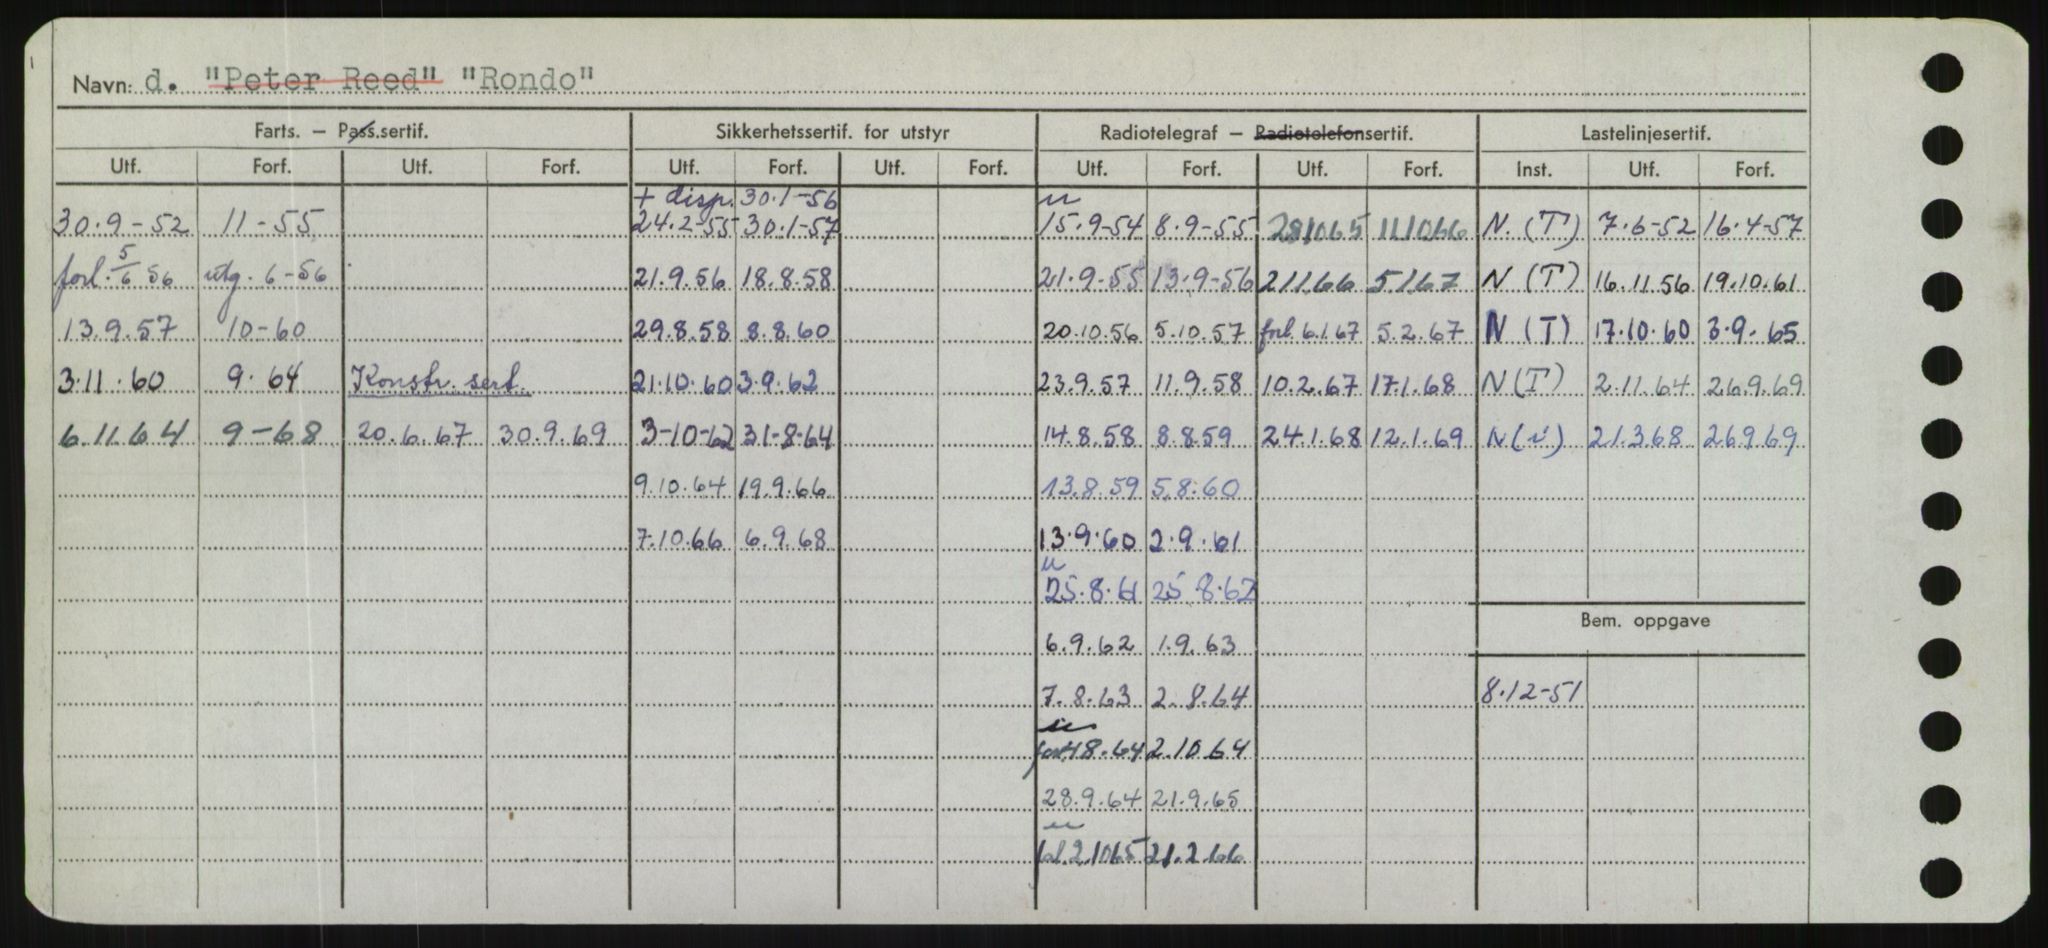 Navn: d. "Peter Reed" "Rondo"
Farts. – Pass.sertif. Sikkerhetssertif. for utstyr Radiotelegraf – Radiotelefonsertif. Lastelinjesertif.
Utf. Forf. Utf. Forf. Utf. Forf. Utf. Forf. Utf. Forf. Utf. Forf. Inst. Utf. Forf.
+ disp. 30.1-56 u
30.9-52 11-55 24.2-55 30.1-57 15.9-54 8.9-55 281065 111066 N.(T) 7.6-52 16.4-57
forl. 5/6 56 utg. 6-56 21.9.56 18.8.58 21.9-55 13.9-56 21166 5167 N (T) 16.11.56 19.10.61
13.9.57 10-60 29.8.58 8.8.60 20.10.56 5.10.57 forl. 6.1.67 5.2.67 N (T) 17.10.60 3.9.65
3.11.60 9.64 Konstr. sert. 21.10.60 3.9.62 23.9.57 11.9.58 10.2.67 17.1.68 N(T) 2.11.64 26.9.69
6.11.64 9-68 20.6.67 30.9.69 3-10-62 31-8-64 14.8.58 8.8.59 24.1.68 12.1.69 N(i) 21.3.68 26.9.69
9.10.64 19.9.66 13.8.59 5.8.60
7.10.66 6.9.68 13.9.60 2.9.61
u
25.8.61 25 8.62
Bem. oppgave
6.9.62 1.9.63
7.8.63 2.8.64 8.12-51
u
2.10.64
28.9.64 21.9.65
u
2.1065 21.2.66